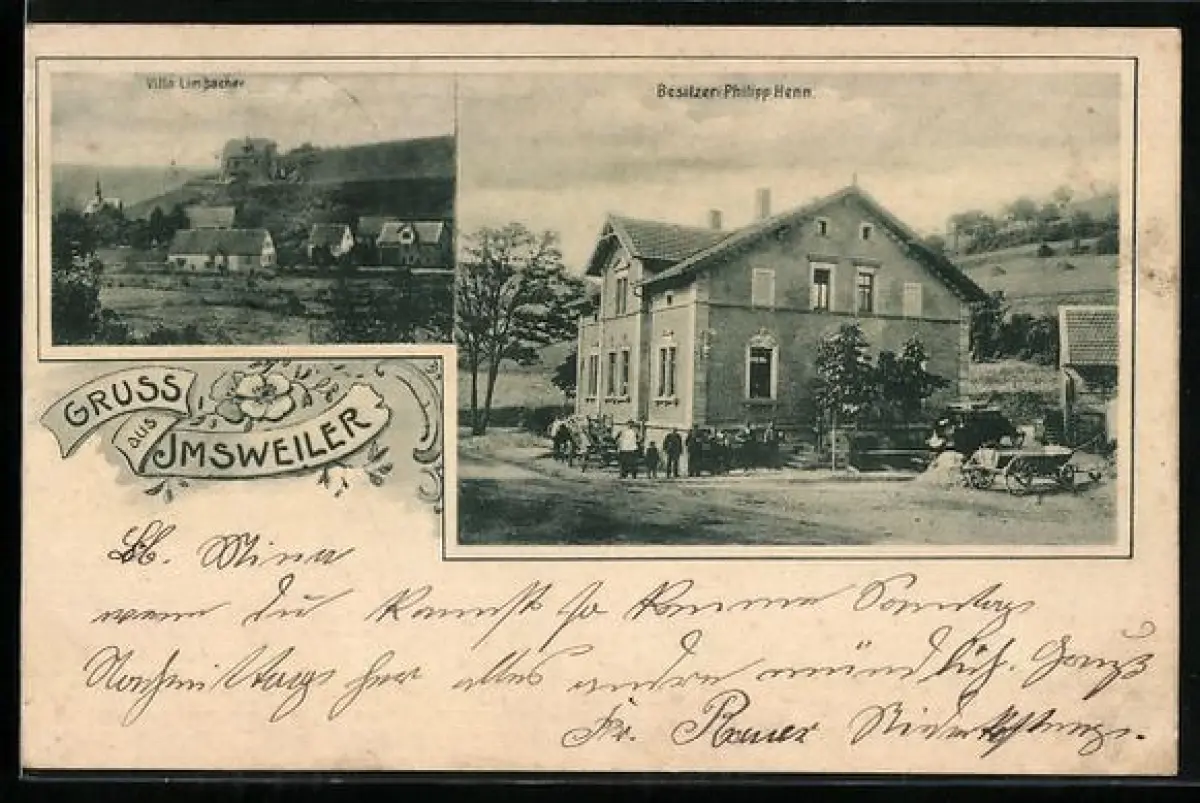 Villa Limbacher
Besitzer: Philipp Henn
GRUSS
aus
IMSWEILER
Lb. Mina
wenn du kannst so komme Sonntags
Nachmittags her alles andre mündlich. Gruß
Fr.